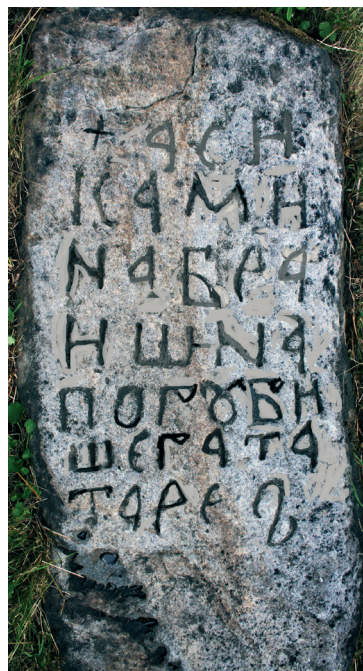 + АСН
КАМН
NАБРА
НШ-NА
ПОГꙊБН
ШЕГАТА
ТАРЕ